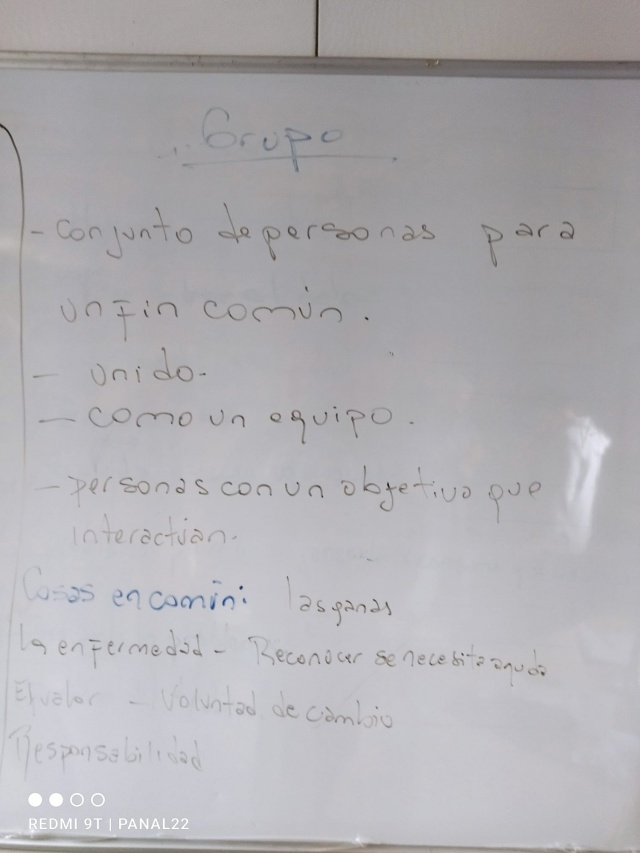 Grupo
- conjunto de personas para
un fin común.
- unido.
- como un equipo.
- personas con un objetivo que
interactúan.
Cosas en común: las ganas
la enfermedad - Reconocer se necesita ayuda
El valor - Voluntad de cambio
Responsabilidad
REDMI 9T | PANAL22